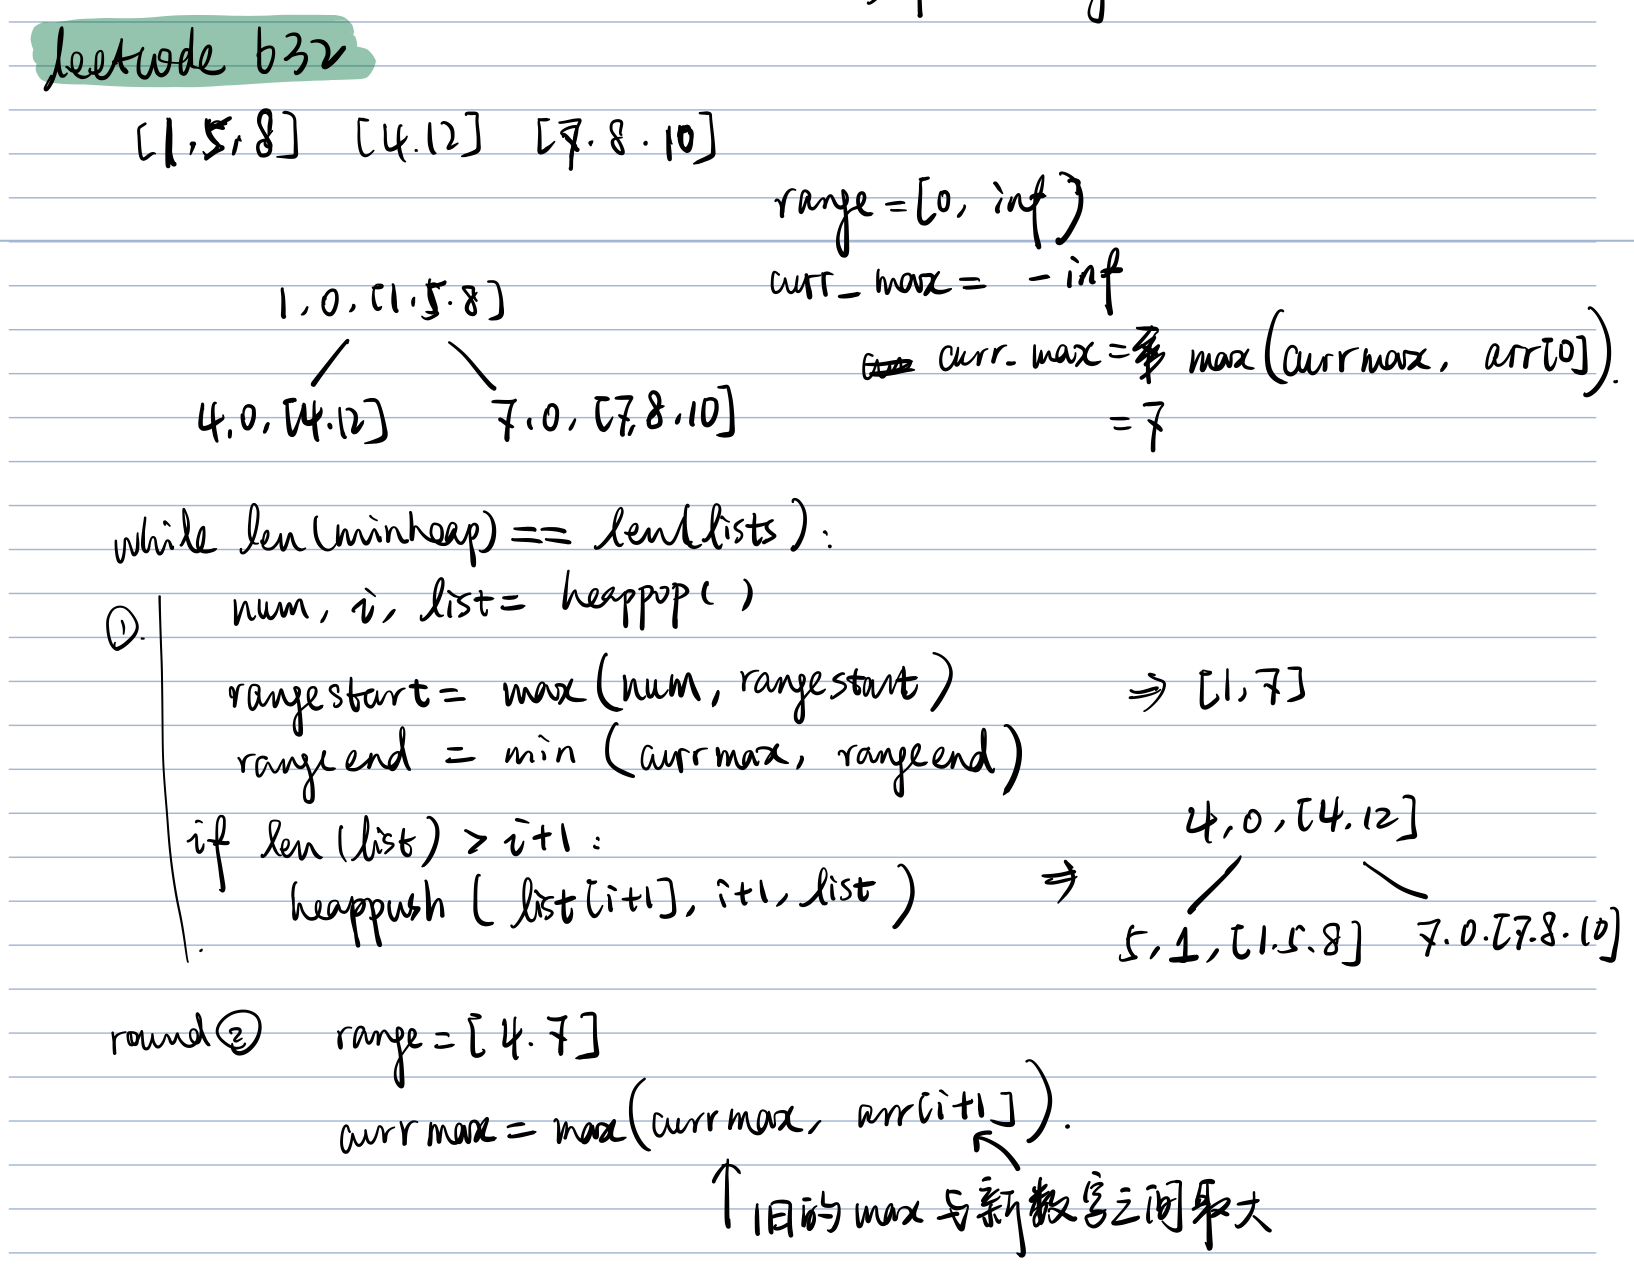 leetcode 632
[1,5,8] [4.12] [7.8.10]
range=[0, inf)
curr_max= -inf
1,0,[1.5.8]
curr_max= max(currmax, arr[0]).
4,0,[4.12] 7.0,[7,8,10]
=7
while len(minheap) == len(lists):
num, i, list= heappop()
①.
rangestart= max(num, rangestart) ⇒ [1,7]
rangeend = min (currmax, rangeend)
4,0,[4.12]
if len(list) > i+1:
heappush( list[i+1], i+1, list ) ⇒
5,1,[1.5.8] 7.0.[7.8.10]
round② range=[4.7]
currmax=max(currmax, arr[i+1]).
↑旧的max与新数字之间最大